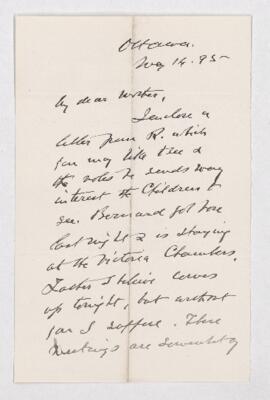 Ottawa.
May 14. 95
My dear mother,
I enclose a
letter from R. which
you may like to see &
the notes he sends may
interest the Children to
see. Bernard got here
last night & is staying
at the Victoria Chambers.
Father I believe comes
up tonight, but without
you I suppose. These
meetings are somewhat of